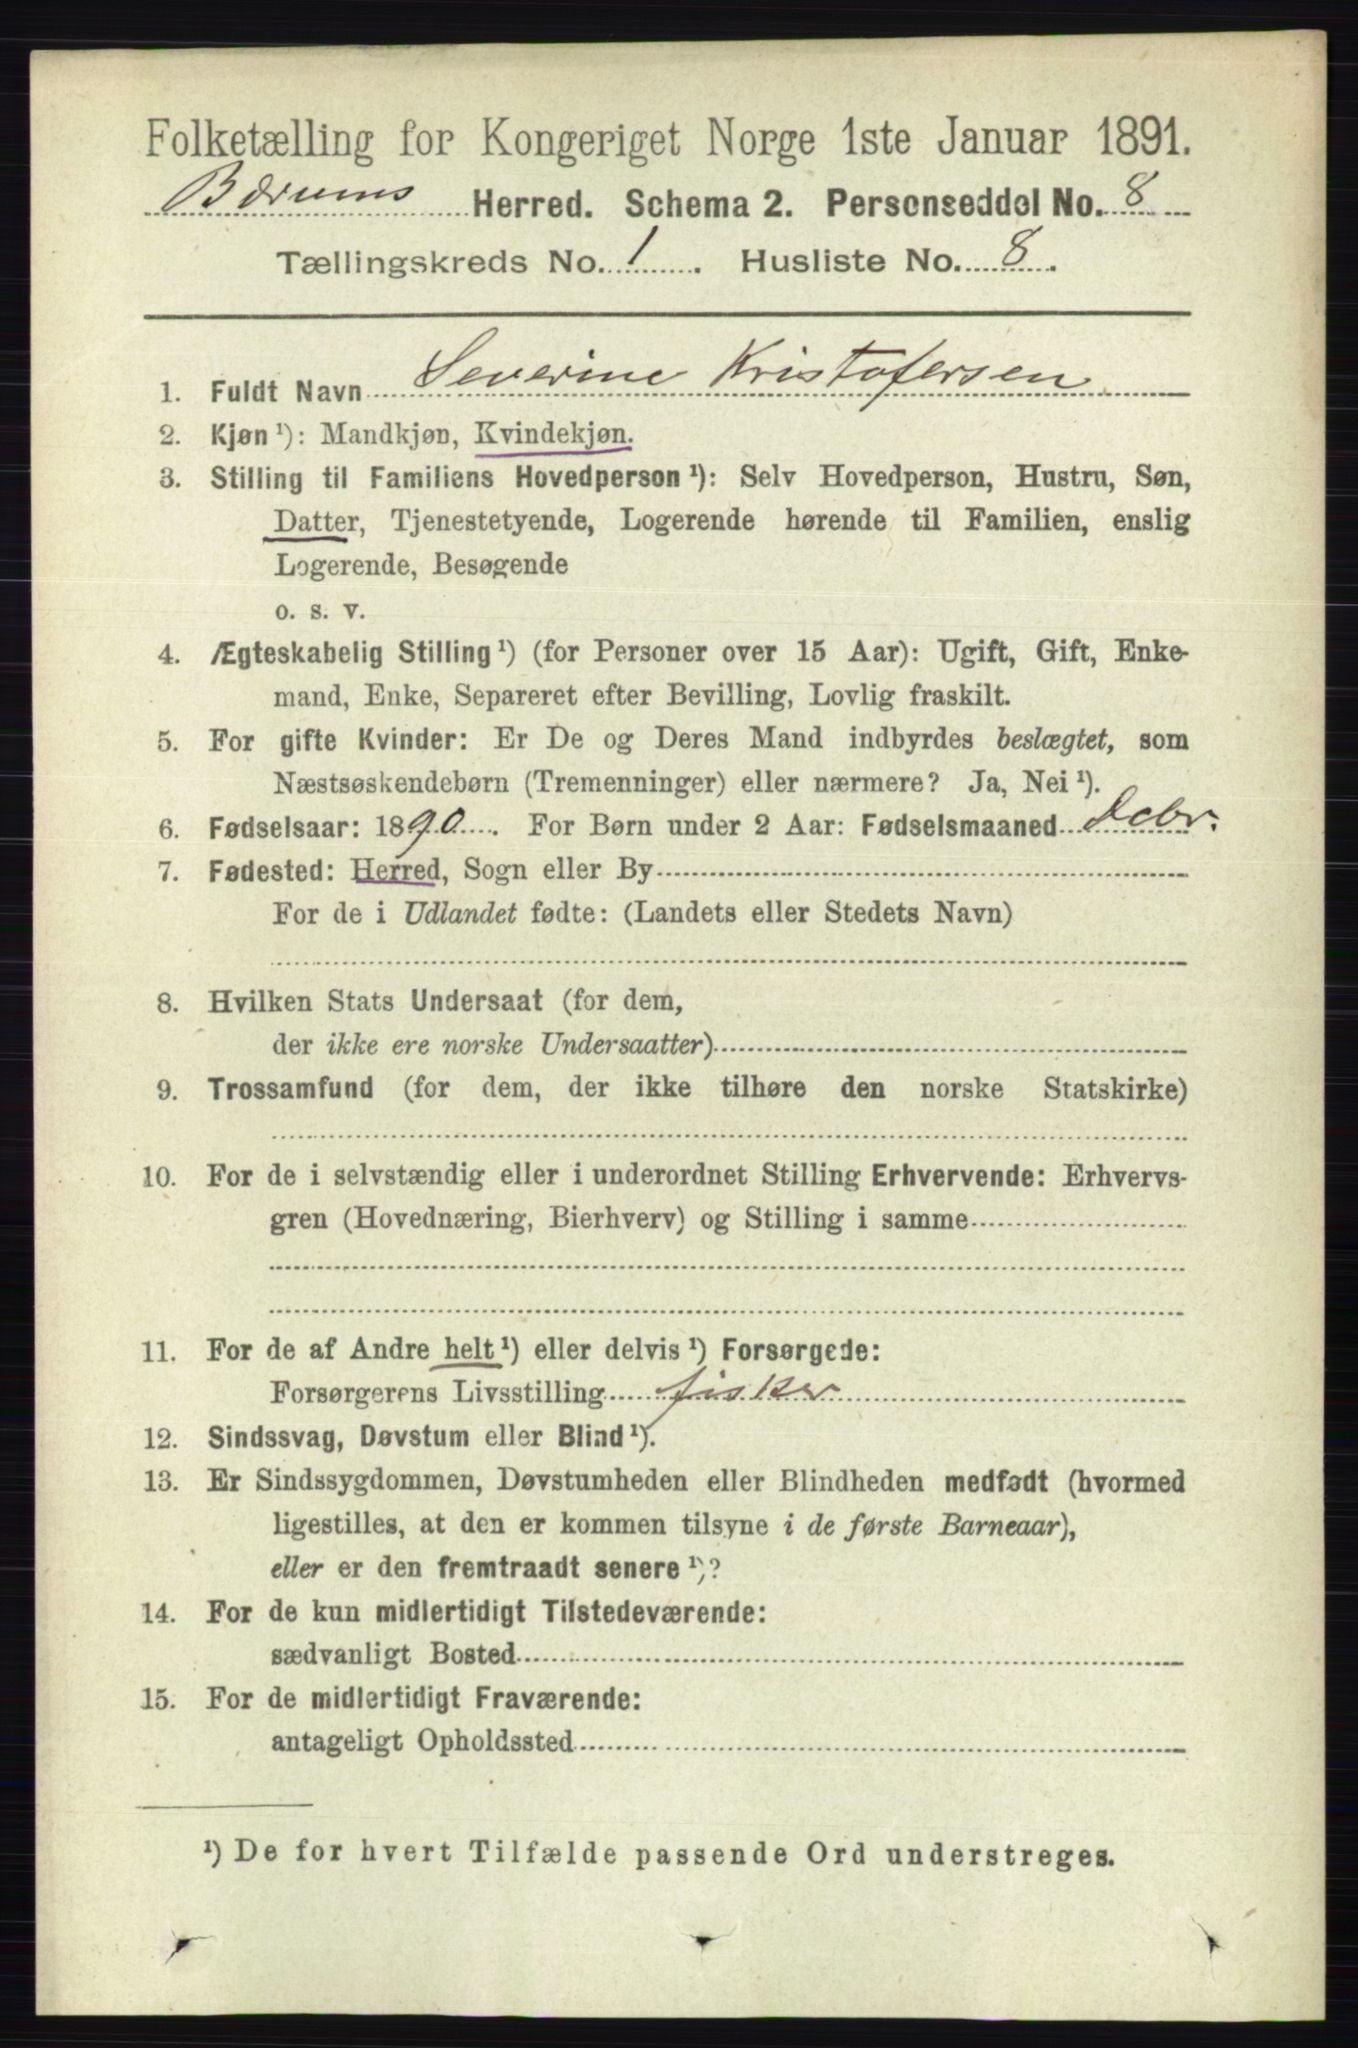 Folketælling for Kongeriget Norge 1ste Januar 1891.
Bærums Herred. Schema 2. Personseddel No. 8
Tællingskreds No. 1. Husliste No. 8.
1. Fuldt Navn Severine Kristofersen
2. Kjøn ¹): Mandkjøn, Kvindekjøn.
3. Stilling til Familiens Hovedperson ¹): Selv Hovedperson, Hustru, Søn,
Datter, Tjenestetyende, Logerende hørende til Familien, enslig
Logerende, Besøgende
o. s. v.
4. Ægteskabelig Stilling ¹) (for Personer over 15 Aar): Ugift, Gift, Enke-
mand, Enke, Separeret efter Bevilling, Lovlig fraskilt.
5. For gifte Kvinder: Er De og Deres Mand indbyrdes beslægtet, som
Næstsøskendebørn (Tremenninger) eller nærmere? Ja, Nei ¹).
6. Fødselsaar: 1890. For Børn under 2 Aar: Fødselsmaaned Debr.
7. Fødested: Herred, Sogn eller By
For de i Udlandet fødte: (Landets eller Stedets Navn)
8. Hvilken Stats Undersaat (for dem,
der ikke ere norske Undersaatter)
9. Trossamfund (for dem, der ikke tilhøre den norske Statskirke)
10. For de i selvstændig eller i underordnet Stilling Erhvervende: Erhvervs-
gren (Hovednæring, Bierhverv) og Stilling i samme
11. For de af Andre helt ¹) eller delvis ¹) Forsørgede:
Forsørgerens Livsstilling fisker
12. Sindssvag, Døvstum eller Blind ¹).
13. Er Sindssygdommen, Døvstumheden eller Blindheden medfødt (hvormed
ligestilles, at den er kommen tilsyne i de første Barneaar),
eller er den fremtraadt senere ¹)?
14. For de kun midlertidigt Tilstedeværende:
sædvanligt Bosted
15. For de midlertidigt Fraværende:
antageligt Opholdssted
¹) De for hvert Tilfælde passende Ord understreges.